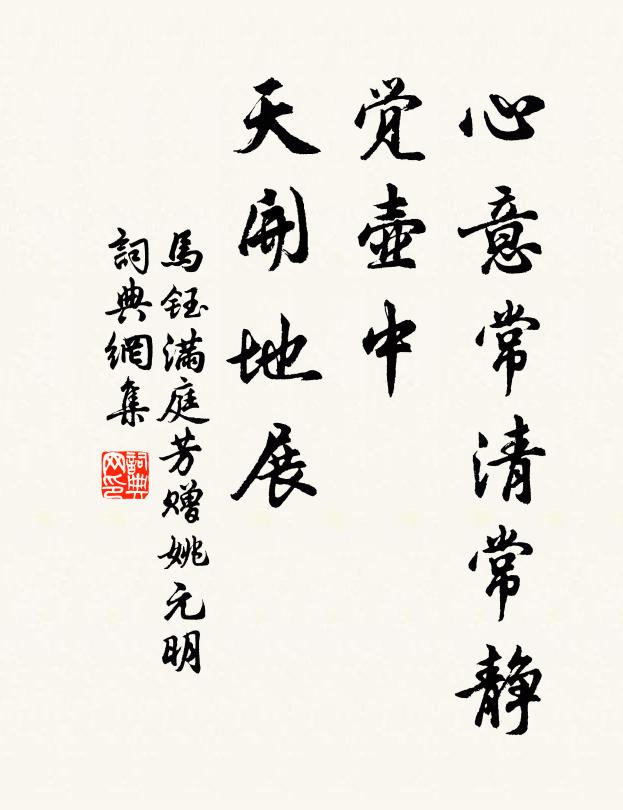 心意常清常静
觉壶中
天開地展
馬鈺满庭芳赠姚元明
詞典網集
詞典
网印